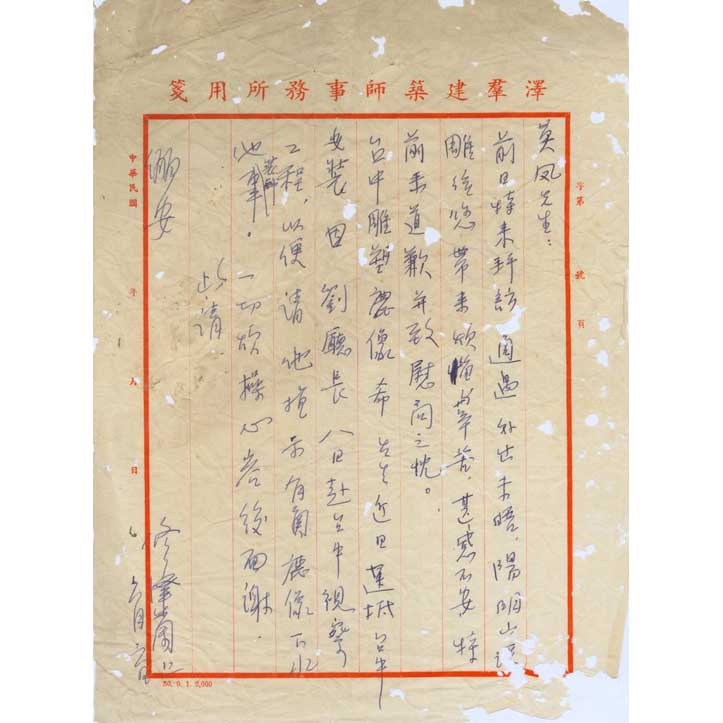 澤羣建築師事務所用箋
字第 號 頁
英風先生:
前日特來拜訪 適過外出未晤,陽明山
雕 您帶來煩惱 辛苦,甚感不安 特
前來道歉并致慰問之忱。
台中雕塑鹿像希 先生近日運抵台中
安裝 因 劉廳長 八日赴台中視察
工程,以便請他指示有關鹿像下水
池裝飾事。一切煩操心容後面謝.
此請
安
中華民國 年 月 日
修澤蘭
六月六日
50. 9. 1. 2,000